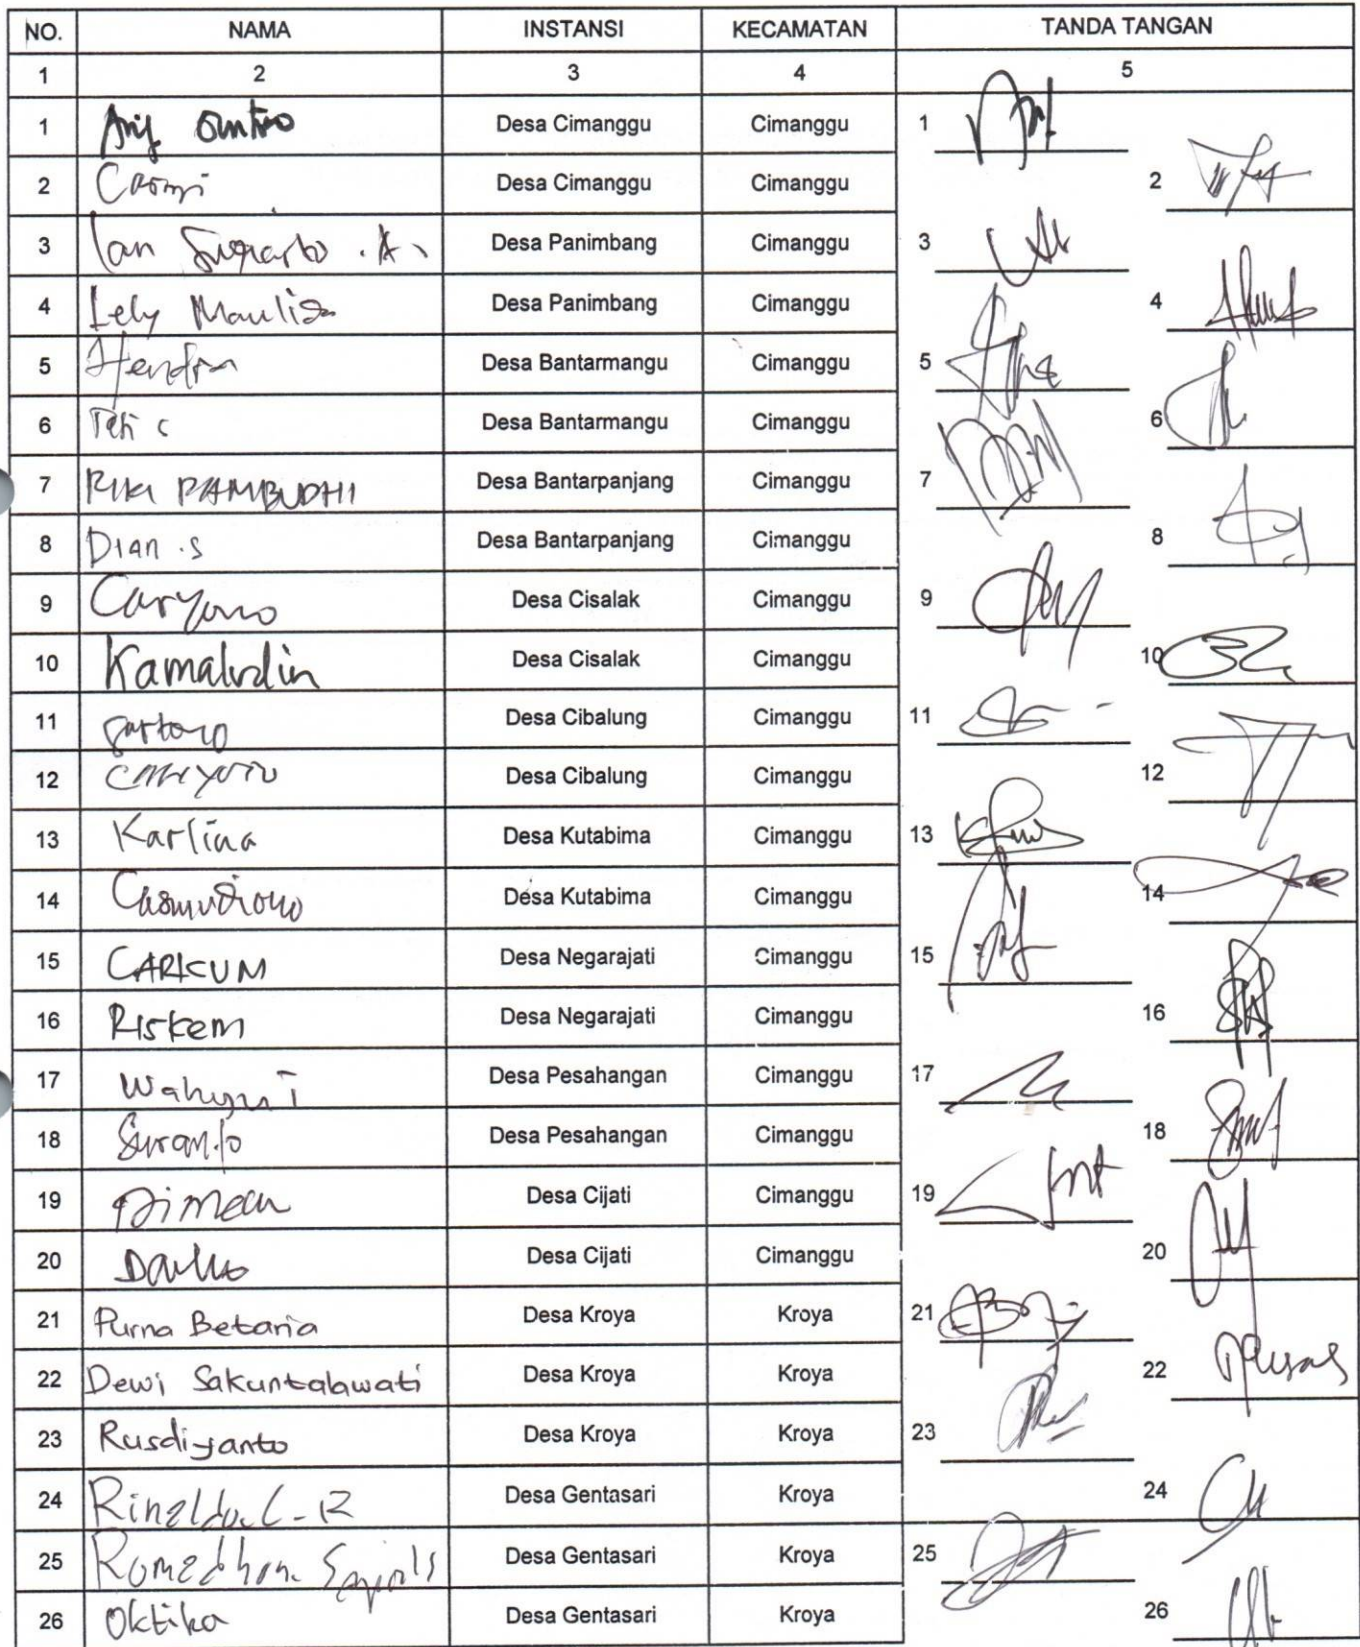 NO. NAMA INSTANSI KECAMATAN TANDA TANGAN
1 2 3 4 5
1 Desa Cimanggu Cimanggu 1
2 Desa Cimanggu Cimanggu 2
3 Ian Suparto .A. Desa Panimbang Cimanggu 3
4 Lely Maulida Desa Panimbang Cimanggu 4
5 Hendra Desa Bantarmangu Cimanggu 5
6 Teti C Desa Bantarmangu Cimanggu 6
7 RIKI PAMBUDHI Desa Bantarpanjang Cimanggu 7
8 DIAN .S Desa Bantarpanjang Cimanggu 8
9 Caryono Desa Cisalak Cimanggu 9
10 Kamaludin Desa Cisalak Cimanggu 10
11 Sartono Desa Cibalung Cimanggu 11
12 Desa Cibalung Cimanggu 12
13 Karlina Desa Kutabima Cimanggu 13
14 Casmudiono Desa Kutabima Cimanggu 14
15 CARKUM Desa Negarajati Cimanggu 15
16 Riskem Desa Negarajati Cimanggu 16
17 Wahyuni Desa Pesahangan Cimanggu 17
18 Suranto Desa Pesahangan Cimanggu 18
19 Desa Cijati Cimanggu 19
20 Desa Cijati Cimanggu 20
21 Purna Betaria Desa Kroya Kroya 21
22 Dewi Sakuntalawati Desa Kroya Kroya 22
23 Rusdiyanto Desa Kroya Kroya 23
24 Rinaldo. C - R Desa Gentasari Kroya 24
25 Romadhon Desa Gentasari Kroya 25
26 Oktika Desa Gentasari Kroya 26